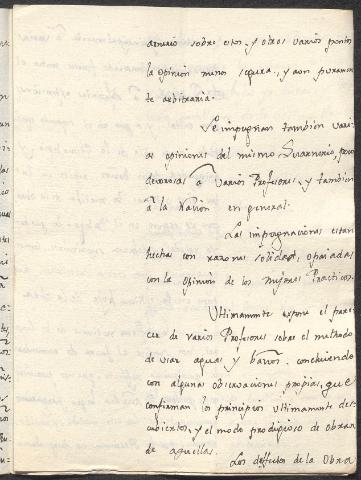 sobre estos, y otros varios puntos
la opinion menos segura, y aun puramen
te arbitraria.
Se impugnan tambien vari
as opiniones del mismo
à varios Profesores, y tambien
à la Nacion en general.
Las impugnaciones estan
hechas con razones solidas, apoiadas
con la opinion de los mejores Practicos.
Ultimamente expone el pare
cer de varios Profesores sobre el methodo
de usar aguas y baños, concluiendo
con algunas observaciones propias, que
confirman los principios ultimamente des
cubiertos, y el modo prodigioso de obrar
de aquellas.
Los defectos de la Obra